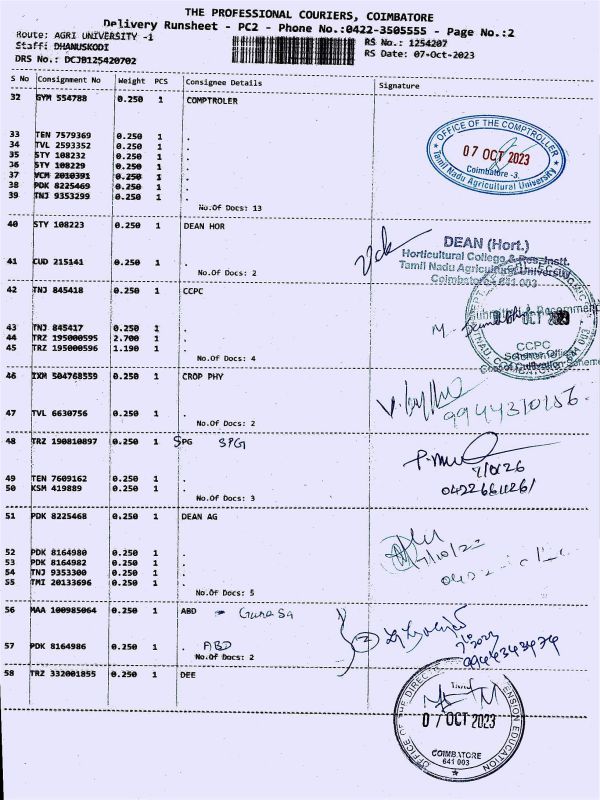 THE PROFESSIONAL COURIERS, COIMBATORE
Delivery Runsheet - PC2 - Phone No.:0422-3505555 - Page No.:2
Route: AGRI UNIVERSITY -1
Staff: DHANUSKODI
DRS No.: DCJB125420702
RS No.: 1254207
RS Date: 07-Oct-2023
S No Consignment No Weight PCS Consignee Details Signature
32 GYM 554788 0.250 1 COMPTROLER
33 TEN 7579369 0.250 1 .
34 TVL 2593352 0.250 1 .
35 STY 108232 0.250 1 .
36 STY 108229 0.250 1 .
37 VCM 2010391 0.250 1 .
38 PDK 8225469 0.250 1 .
39 TNJ 9353299 0.250 1 .
No.Of Docs: 13
OFFICE OF THE COMPTROLLER
07 OCT 2023
Coimbatore -3.
Tamil Nadu Agricultural University
40 STY 108223 0.250 1 DEAN HOR
41 CUD 215141 0.250 1 .
No.Of Docs: 2
DEAN (Hort.)
Horticultural College & Res. Instt.
Tamil Nadu Agricultural University
Coimbatore - 641 003
42 TNJ 845418 0.250 1 CCPC
43 TNJ 845417 0.250 1 .
44 TRZ 195000595 2.700 1 .
45 TRZ 195000596 1.190 1 .
No.Of Docs: 4
OCT 2023
CCPC
46 IXM 504768559 0.250 1 CROP PHY
47 TVL 6630756 0.250 1 .
No.Of Docs: 2
48 TRZ 190810897 0.250 1 SPG SPG
49 TEN 7609162 0.250 1 .
50 KSM 419889 0.250 1 .
No.Of Docs: 3
51 PDK 8225468 0.250 1 DEAN AG
52 PDK 8164980 0.250 1 .
53 PDK 8164982 0.250 1 .
54 TNJ 9353300 0.250 1 .
55 TMI 20133696 0.250 1 .
No.Of Docs: 5
56 MAA 100985064 0.250 1 ABD
57 PDK 8164986 0.250 1 . ABD
No.Of Docs: 2
2
58 TRZ 332001855 0.250 1 DEE
07 OCT 2023
COIMBATORE
641 003